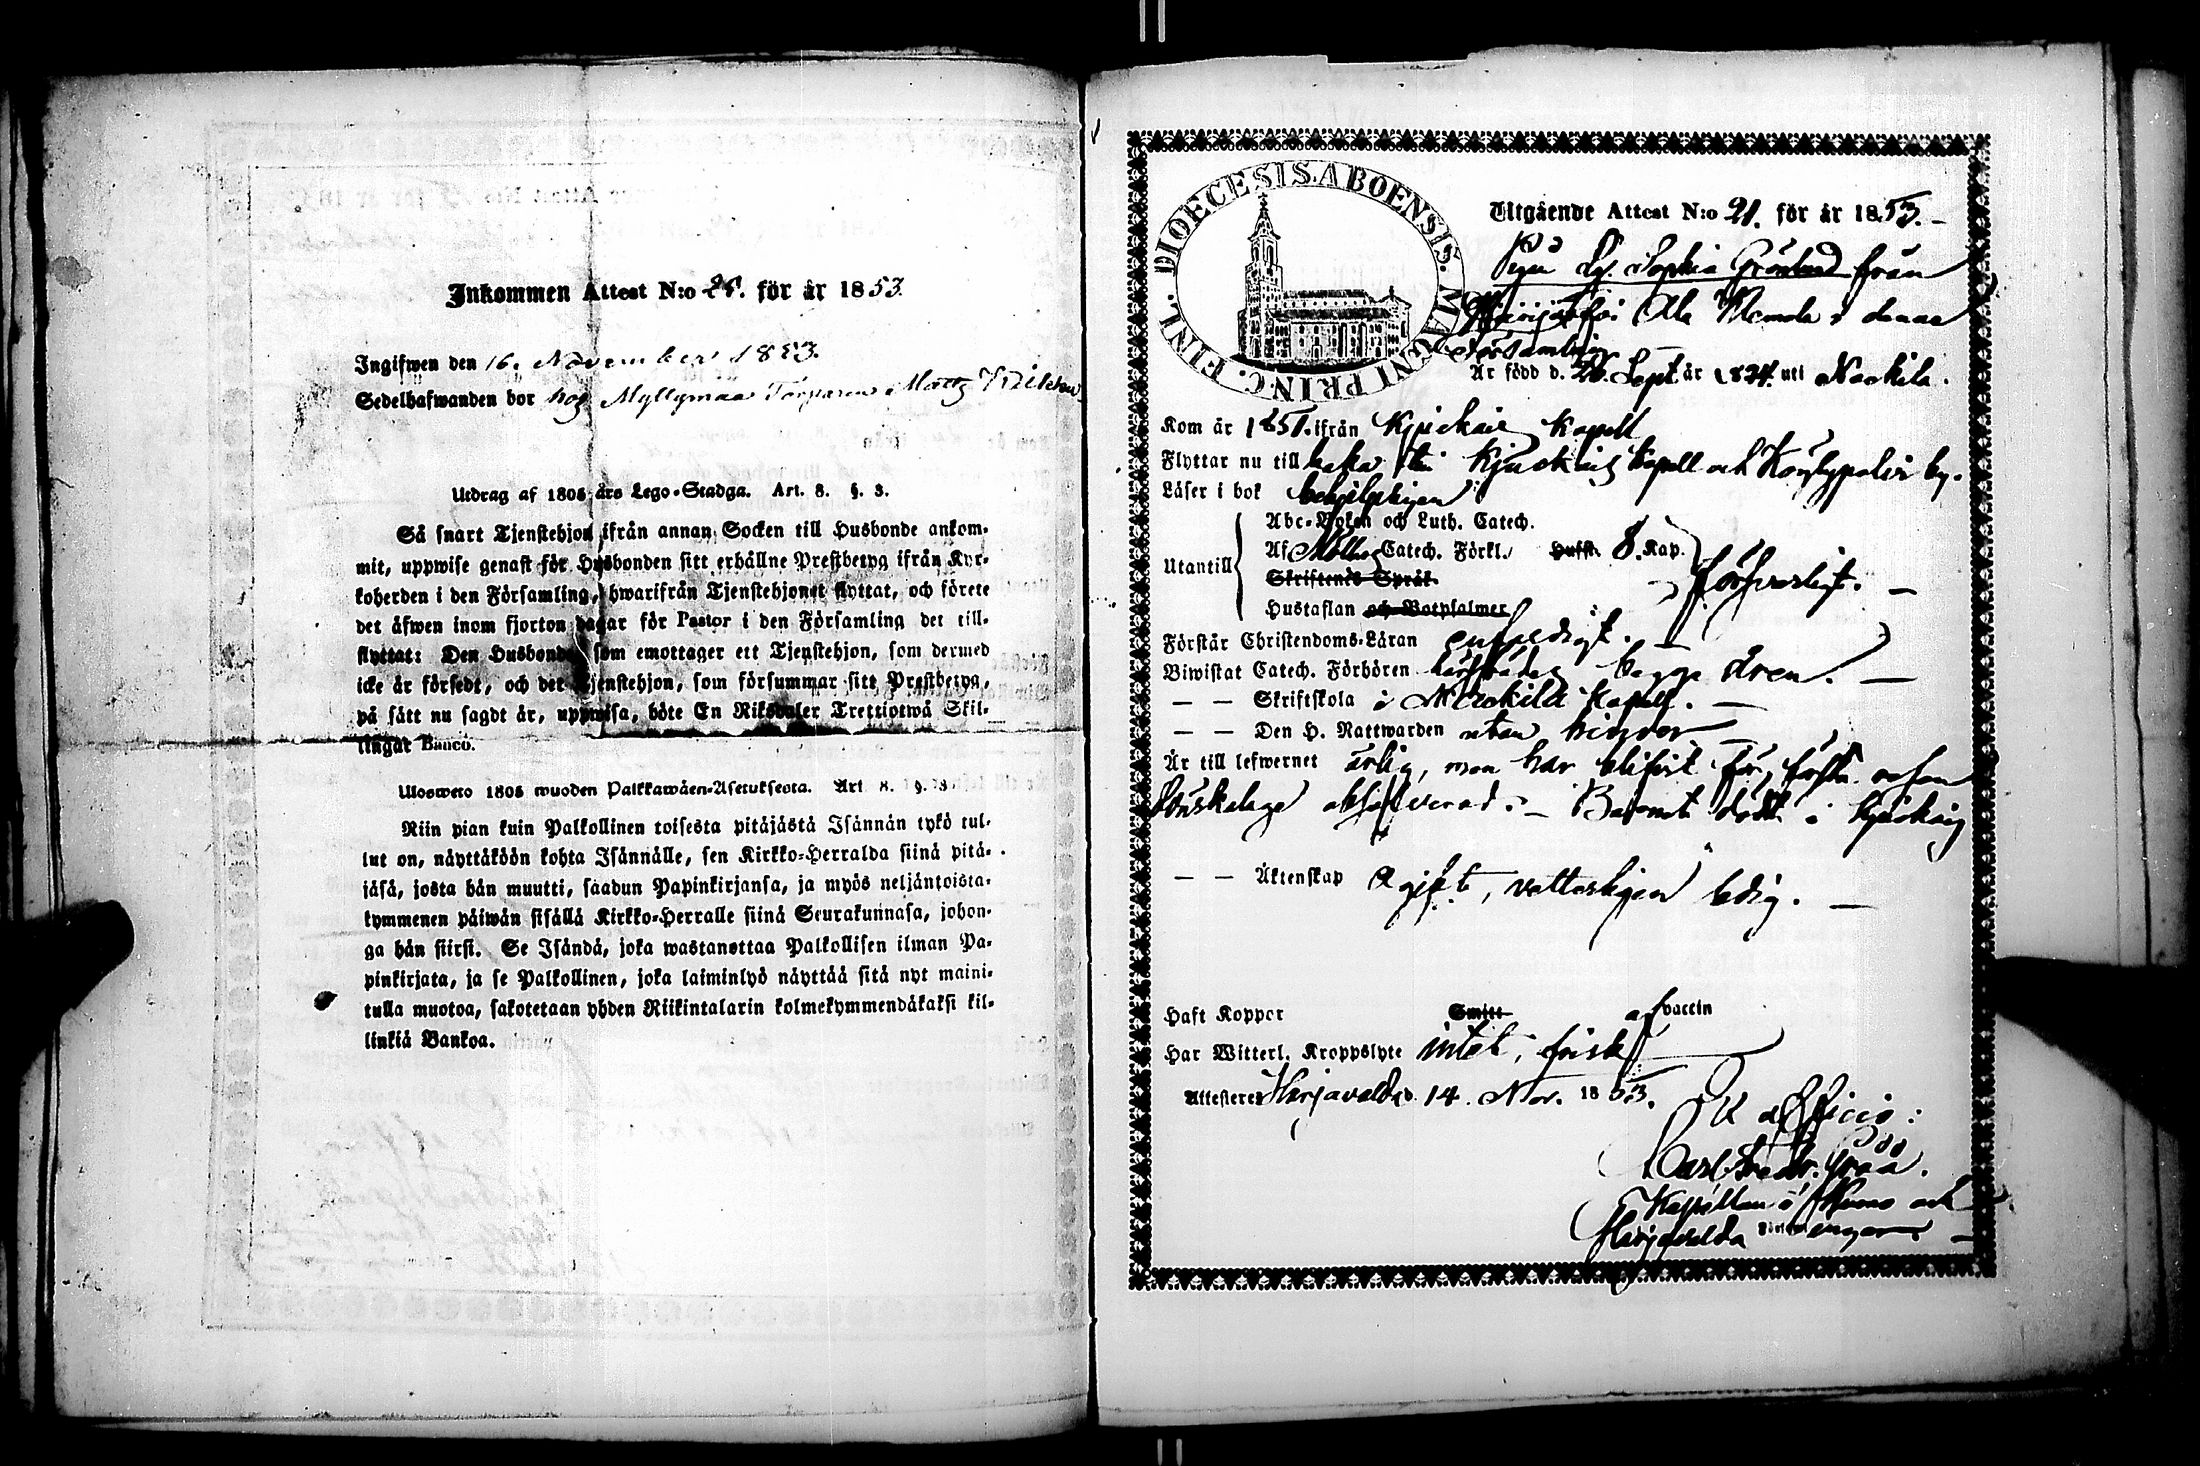 Inkommen Attest N:o 25. för år 1853.
Ingifwen den 16. November 1853.
Sedelhafwanden bor hos Myllymaa Torparen Matts
Utdrag af 1805 års Lego-Stadga. Art. 8. §. 3.
Så snart Tjenstehjon ifrån annan Socken till Husbonde ankom-
mit, uppwise genast för Husbonden sitt erhållne Prestbetyg ifrån Kyr-
koherden i den Församling, hwarifrån Tjenstehjonet flyttat, och förete
det äfwen inom fjorton dagar för Pastor i den Församling det till-
flyttat: Den Husbonde, som emottager ett Tjenstehjon, som dermed
icke är försedt, och det Tjenstehjon, som försummar sitt Prestbetyg,
på sätt nu sagdt är, uppwisa, böte En Riksdaler Trettiotwå Skil-
lingar Banco.
Ulosweto 1805 wuoden Palkkawäen-Asetuksesta. Art. 8. §. 3.
Niin pian kuin Palkollinen toisesta pitäjästä Isännän tykö tul-
lut on, näyttäköön kohta Isännälle, sen Kirkko-Herralda siinä pitä-
jäsä, josta hän muutti, saadun Papinkirjansa, ja myös neljäntoista-
kymmenen päiwän sisällä Kirkko-Herralle siinä Seurakunnasa, johon-
ga hän siirsi. Se Isändä, joka wastanottaa Palkollisen ilman Pa-
pinkirjata, ja se Palkollinen, joka laiminlyö näyttää sitä nyt maini-
tulla muotoa, sakotetaan yhden Riikintalarin kolmekymmendäkaksi kil-
linkiä Bankoa.
DIOECESIS. ABOENSIS. MAGNI PRINC. FINL.
Utgående Attest N:o 21. för år 1853.
Pigan Sophia Grönlund från
Ala i denna
Församling
Är född d. 26. Sept. år 1824. uti Nackila.
Kom år 1851. ifrån Kjulais kapell
Flyttar nu till baka till Kjulais kapell och Köylypolis by.
Läser i bok behjelpligen
Utantill
Abc-Boken och Luth. Catech.
Af Möllers Catech. Förkl. Hufst. 8. Kap.
Skriftenes Språk
Hustaflan och Botpsalmer
försvarligt.
Förstår Christendoms-Läran enfaldigt.
Biwistat Catech. Förhören härstädes begge åren.
— — Skriftskola i Nackila kapell.
— — Den H. Nattwarden utan hinder
Är till lefwernet ärlig, men har blifvit för första resan
lönskaläge absolverad. — Barnet dödt i Kjulais
— — Äktenskap ogift, vetterligen ledig.
Haft Koppor Smitt af vaccin
Har Witterl. Kroppslyte intet, frisk
Attesterer Harjavalda d. 14. Nov. 1853.
Ex officio:
Carl Fredr. Gröö.
Kapellan i Kumo och
Harjavalda